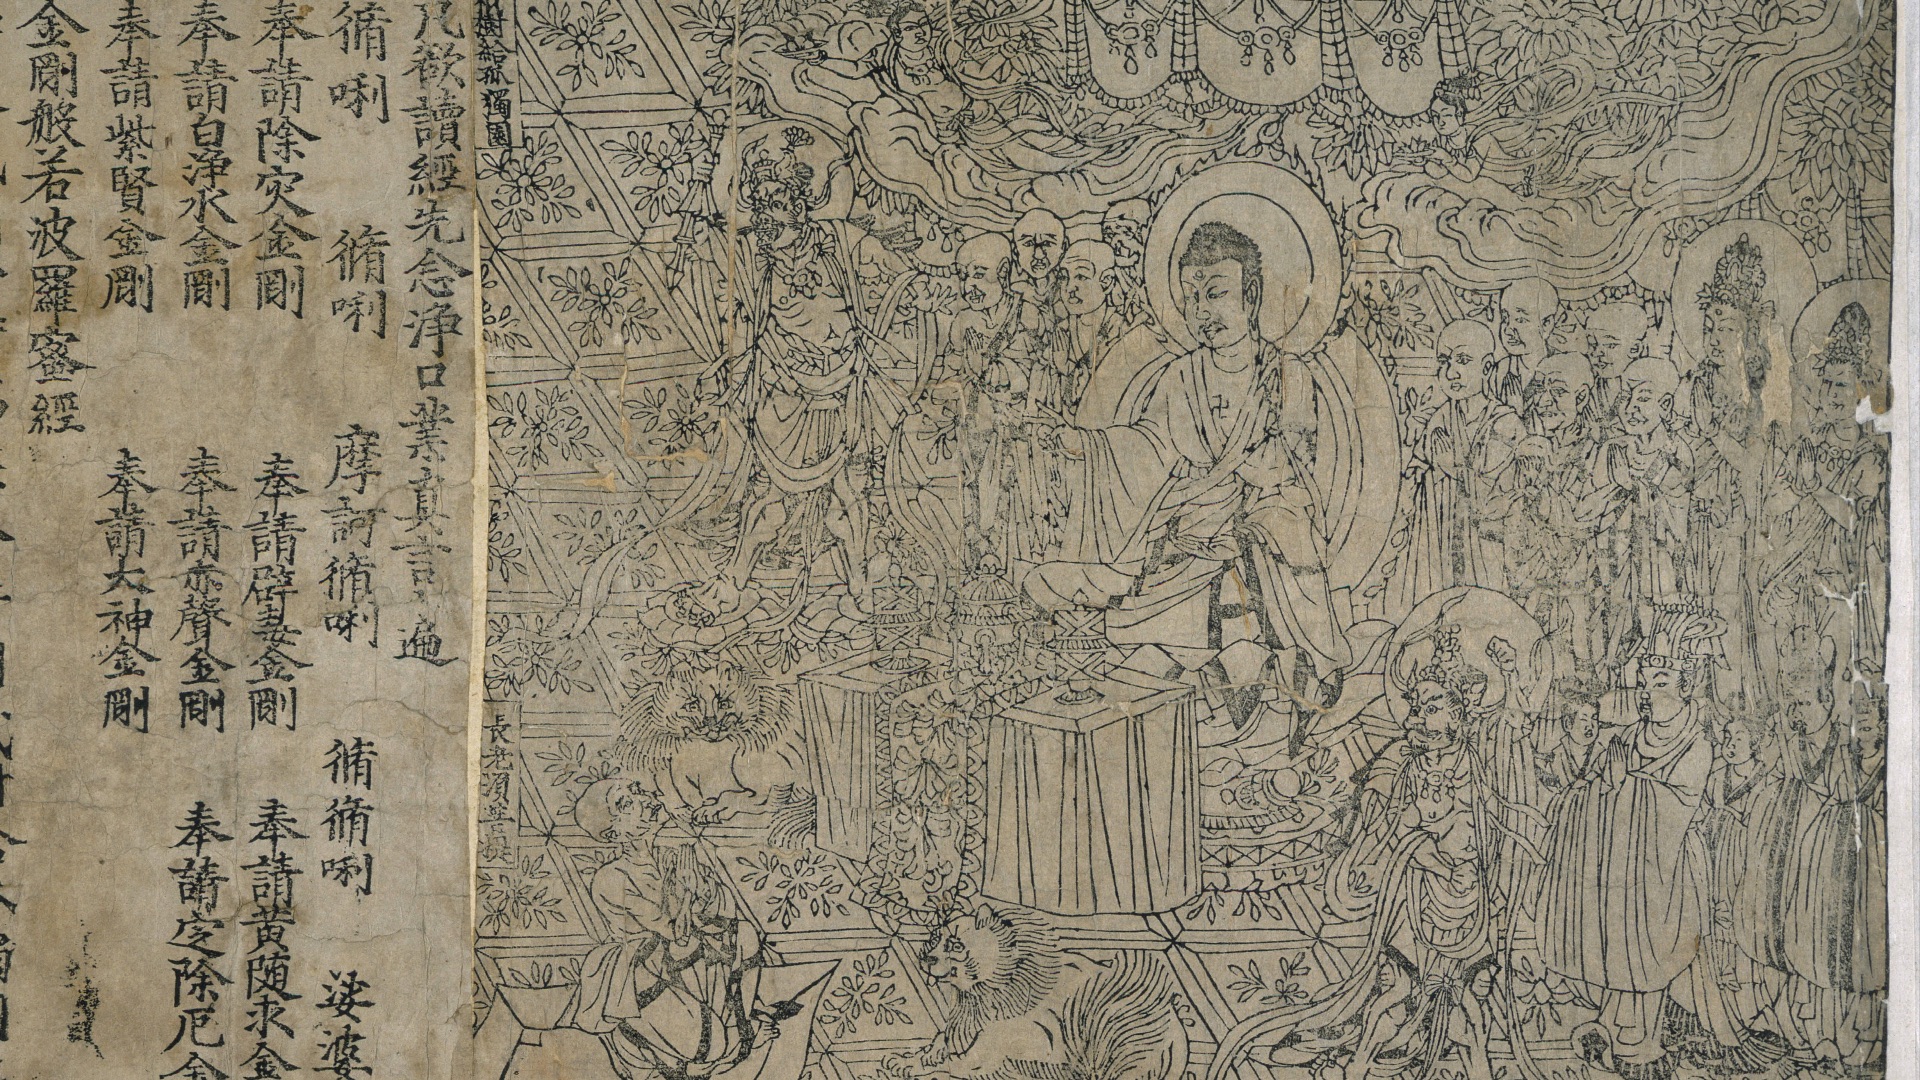 樹給孤獨園
長老須菩提
凡欲讀經先念浄口業真言一遍
脩唎 脩唎 摩訶脩唎 脩脩唎 娑婆
奉請除灾金剛 奉請辟毒金剛 奉請黃随求金
奉請白浄水金剛 奉請赤聲金剛 奉請定除厄金
奉請紫賢金剛 奉請大神金剛
金剛般若波羅蜜經